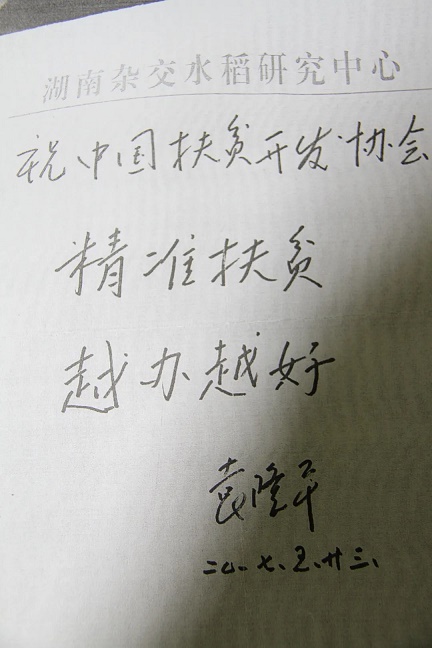 湖南杂交水稻研究中心
祝中国扶贫开发协会
精准扶贫
越办越好
袁隆平
二〇一七、五、廿三、